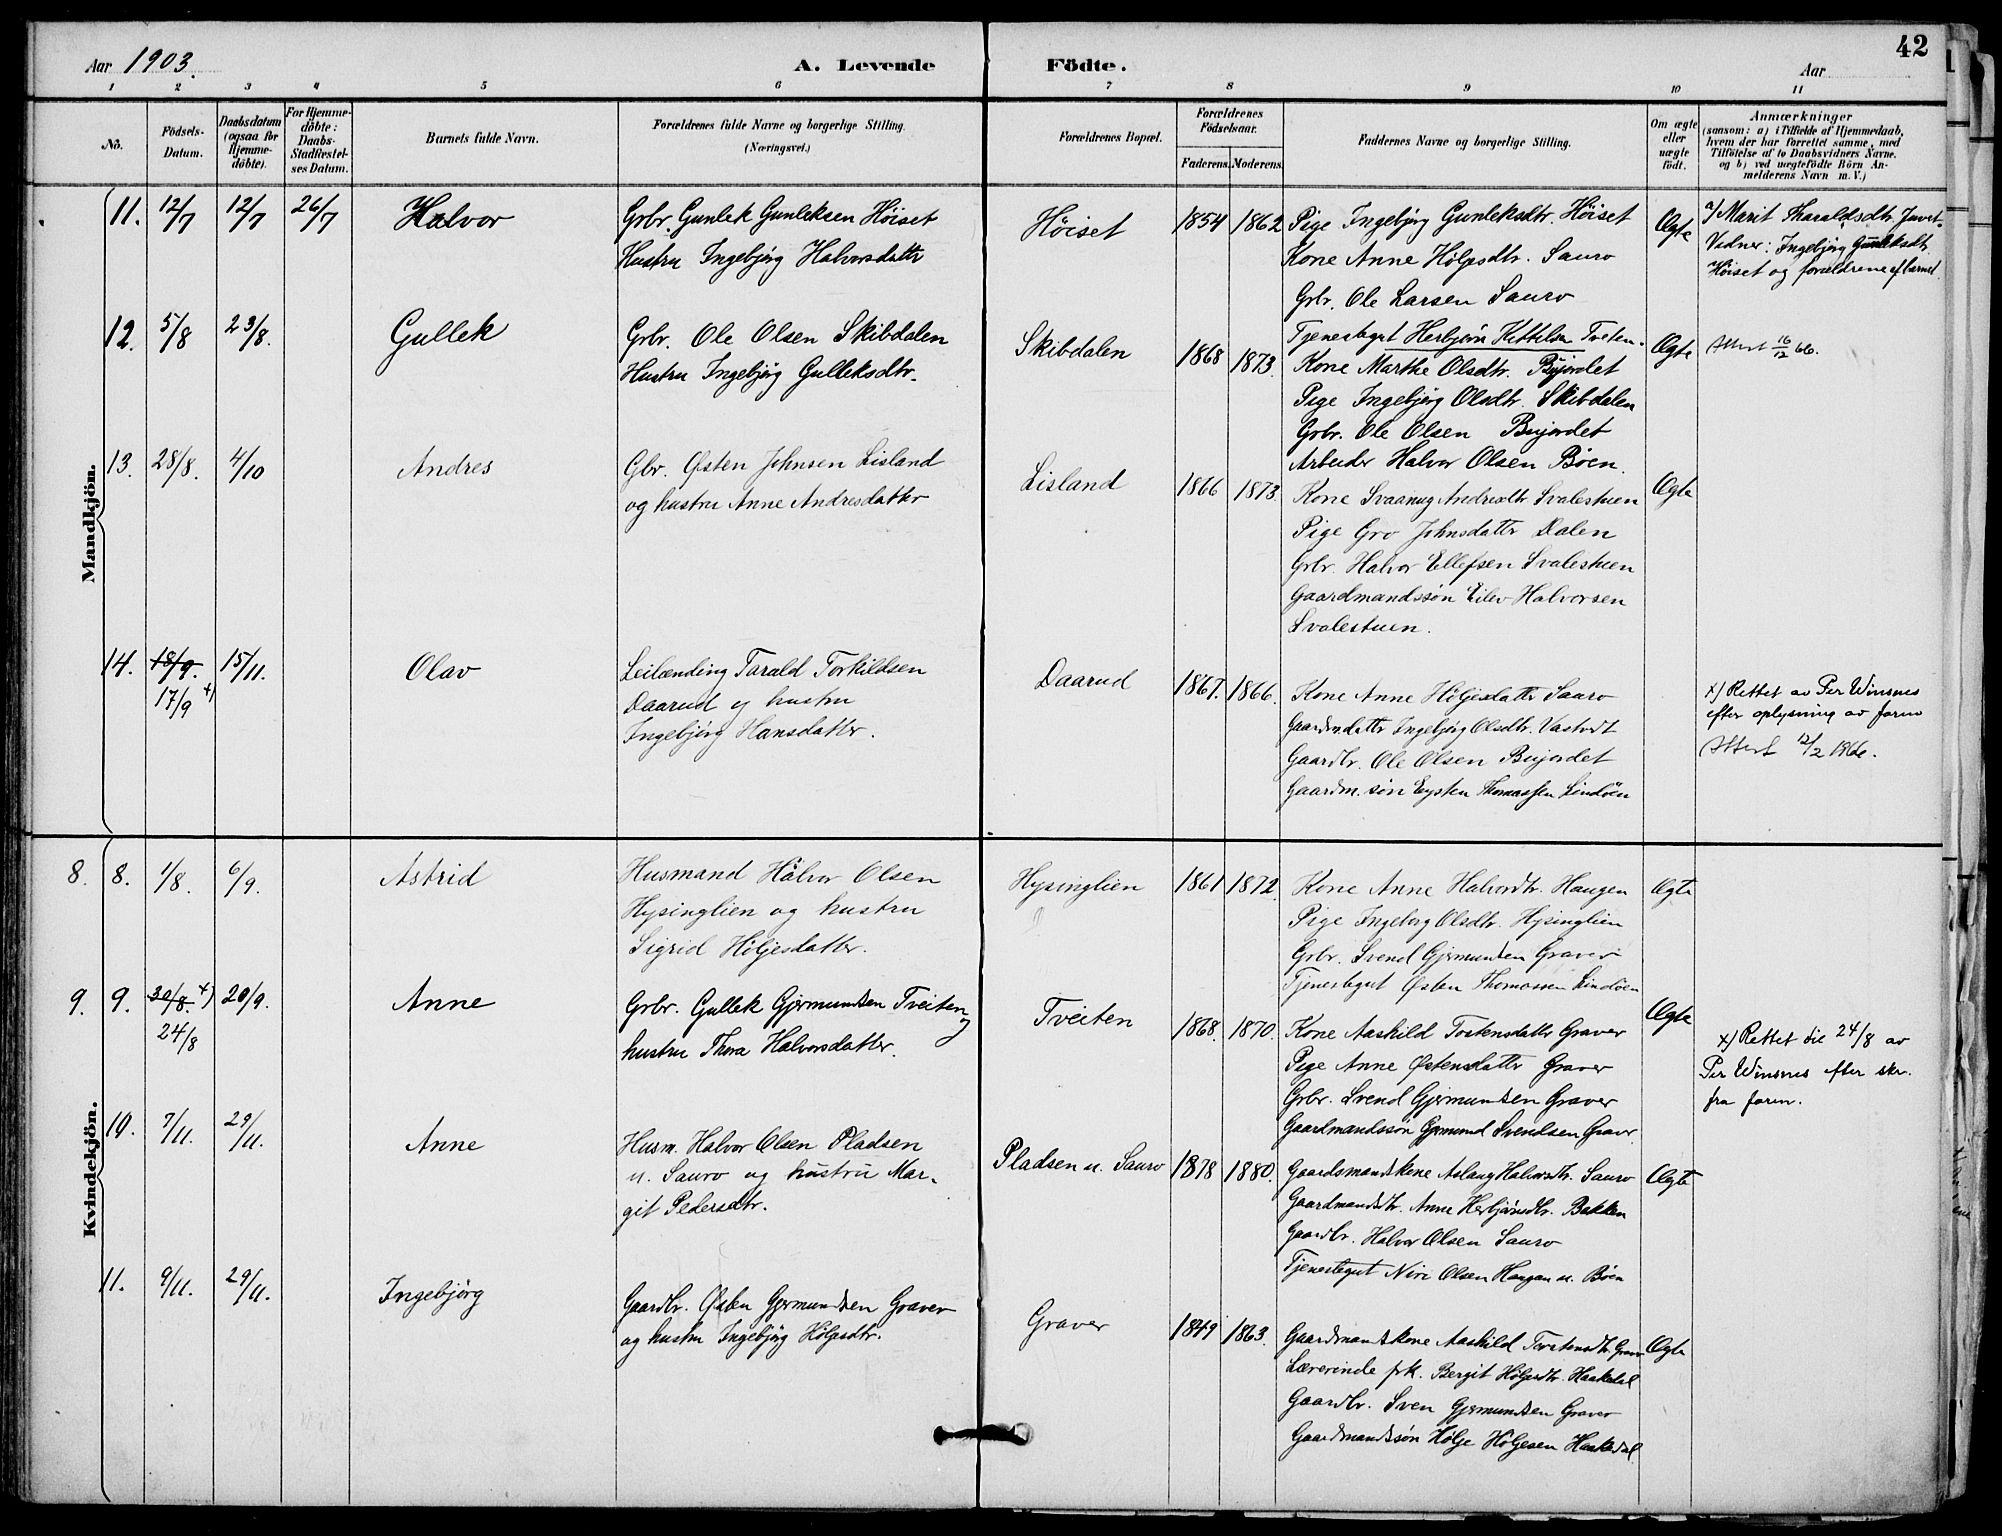 42
Aar 1903.
A. Levende Födte.
Aar
1 2 3 4 5 6 7 8 9 10 11
No.
Födsels-Datum.
Daabsdatum (ogsaa for Hjemme-döbte).
For Hjemme-döbte: Daabs-Stadfæstel-ses Datum.
Barnets fulde Navn.
Forældrenes fulde Navne og borgerlige Stilling.
(Næringsvei.)
Forældrenes Bopæl.
Forældrenes Födselsaar.
Faderens. Moderens.
Faddernes Navne og borgerlige Stilling.
Om ægte eller uægte födt.
Anmærkninger
(saasom: a) i Tilfælde af Hjemmedaab,
hvem der har forrettet samme, med
Tilföielse af to Daabsvidners Navne.
og b) ved uægtefödte Börn An-
melderens Navn m. V.)
Mandkjön.
11. 12/7 12/7 26/7 Halvor
Grbr. Gunlek Gunleksen Höiset
Hustru Ingebjörg Halvorsdatter
Höiset 1854 1862
Pige Ingebjörg Gunleksdtr. Höiset
Kone Anne Höljesdtr. Sauro
Grbr. Ole Larsen Sauro
Ægte
a/ Marit Tharaldsdtr. Juvet.
Vidner: Ingebjörg Gunleksdtr.
Höiset og forældrene af barnet
12. 5/8 23/8. Gullek
Grbr. Ole Olsen Skibdalen
Hustru Ingebjörg Gulleksdtr.
Skibdalen 1868 1873.
Tjenestegut Herbjörn Kittelsen Tveten.
Kone Marthe Olsdtr. Bujordet
Pige Ingebjörg Olsdtr. Skibdalen
Grbr. Ole Olsen Bujordet
Arbeider Halvor Olsen Böen.
Ægte
Attest 16/12 66.
13. 28/8. 4/10 Andres
Gbr. Østen Johnsen Lisland
og hustru Anne Andresdatter
Lisland 1866 1873
Kone Svaanug Andresdtr Svalestuen
Pige Gro Johnsdatter Dalen
Grbr. Halvor Ellefsen Svalestuen
Gaardmandssön Eilev Halvorsen
Svalestuen.
Ægte
14. 18/9. 15/11. Olav
17/9 x)
Leilænding Tarald Torkildsen
Daarud og hustru
Ingebjörg Hansdatter.
Daarud 1867. 1866.
Kone Anne Höljesdatter Sauro
Gaardm.datter Ingebjörg Olsdtr. Vastvedt
Gaardbr. Ole Olsen Bujordet
Gaardm. sön Eysten Thomassen Lindöen
x) Rettet av Per Winsnes
efter oplysning av faren
Attest 12/2 1960.
Kvindekjön.
8. 8. 1/8. 6/9. Astrid
Husmand Halvor Olsen
Hysinglien og hustru
Sigrid Höljesdatter.
Hysinglien 1861 1872.
Kone Anne Halvordtr. Haugen
Pige Ingeborg Olsdtr. Hysinglien
Grbr. Svend Gjermundsen Graver
Tjenestegut Østen Thomassen Lindöen
Ægte
9. 9. 30/8. x) 20/9. Anne
24/8
Grbr. Gullek Gjermundsen Tveiten og
hustru Thora Halvorsdatter.
Tveiten 1868. 1870.
Kone Aashild Tostensdatter Graver
Pige Anne Østensdatter Graver
Grbr. Svend Gjermundsen Graver
Gaardmandssön Gjermund Svendsen Graver
Ægte
x) Rettet til 24/8 av
Per Winsnes efter skr.
fra faren.
10. 7/11. 29/11. Anne
Husm. Halvor Olsen Pladsen
u. Sauro og hustru Mar-
git Pedersdtr.
Pladsen u. Sauro 1878 1880.
Gaardsmandskone Aslaug Halvorsdtr. Sauro
Gaardmandsdtr. Anne Herbjörnsdtr. Bakken
Gaardbr. Halvor Olsen Sauro
Tjenestegut Niri Olsen Haugan u. Böen
Ægte
11. 9/11. 29/11. Ingebjörg
Gaardbr. Østen Gjermundsen Graver
og hustru Ingebjörg Höljesdtr.
Graver 1849 1863.
Gaardmandskone Aashild Torstensdtr. Graver
Lærerinde frk. Bergit Höljesdtr. Haakedal
Gaardbr. Sven Gjermundsen Graver
Gaardmandssön Hölje Höljesen Haakedal
Ægte